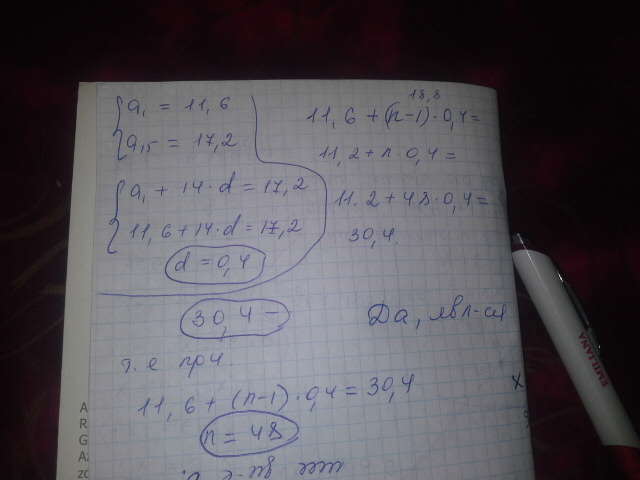 a₁ = 11,6
a₁₅ = 17,2
a₁ + 14·d = 17,2
11,6 + 14·d = 17,2
d = 0,4
18,8
11,6 + (n-1)·0,4 =
11,2 + n·0,4 =
11.2 + 48·0,4 =
30,4.
30,4 -
Да, явл-ся
т.е при.
11,6 + (n-1)·0,4 = 30,4
n = 48